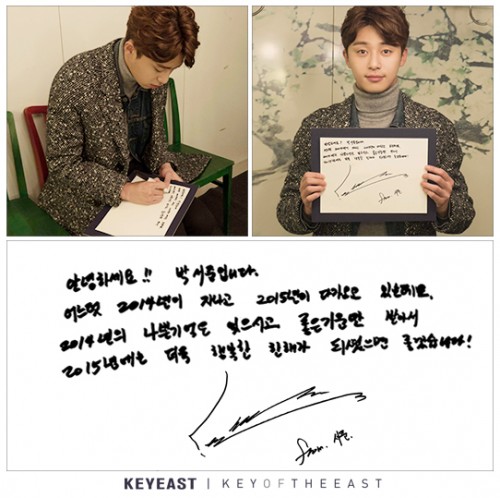 안녕하세요!! 박서준입니다.
어느덧 2014년이 지나고 2015년이 다가오고 있는데요.
2014년의 나쁜기억은 잊으시고 좋은기운만 받아서
2015년에는 더욱 행복한 한해가 되셨으면 좋겠습니다!
from. 서준.
KEYEAST | KEYOFTHEEAST